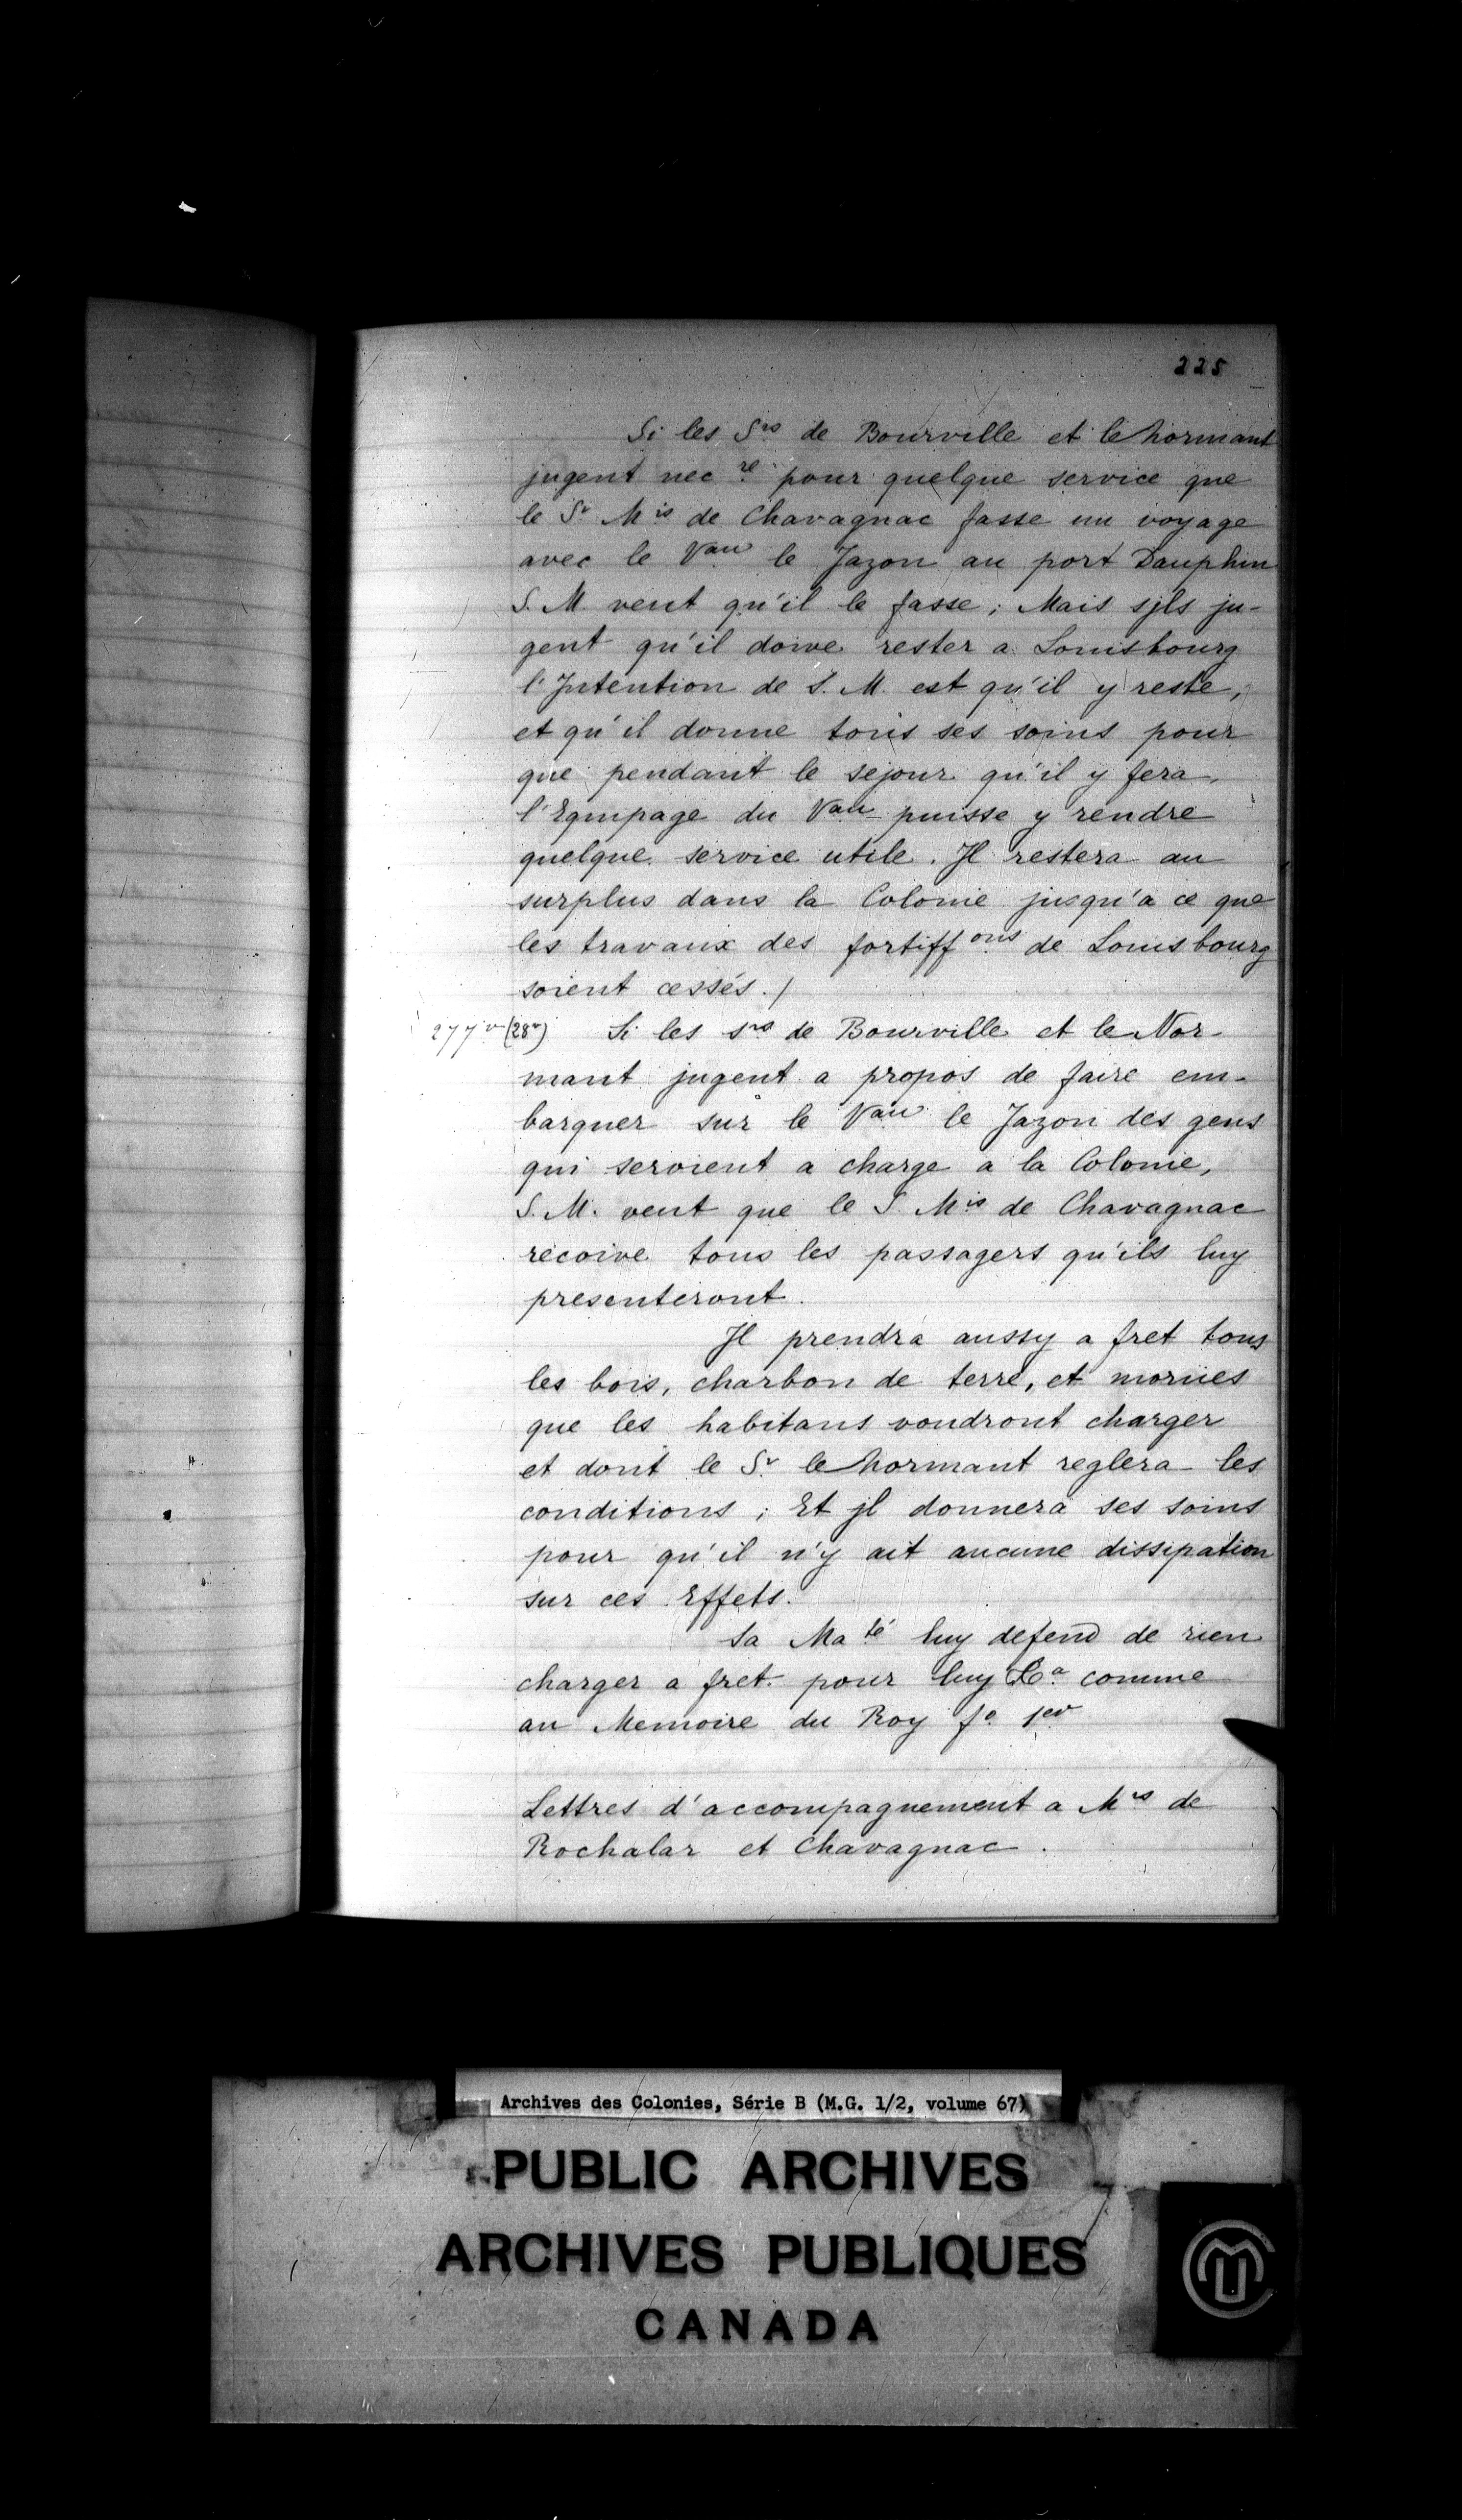 225
Si les Srs de Bourville et le Normant
jugent necre pour quelque service que
le Sr Mis de Chavagnac fasse un voyage
avec le Vau le Jazon au port Dauphin
S. M veut qu'il le fasse; Mais sjls ju-
gent qu'il doive rester a Louisbourg
l'Jntention de S. M. est qu'il y reste,
et qu'il donne tous ses soins pour
que pendant le sejour qu'il y fera,
l'Equipage du Vau puisse y rendre
quelque service utile. Jl restera au
surplus dans la Colonie jusqu'a ce que
les travaux des fortiffons de Louisbourg
soient cessés./
277 vo (28v) Si les srs de Bourville et le Nor-
mant jugent a propos de faire em-
barquer sur le Vau le Jazon des gens
qui seroient a charge a la Colonie,
S. M. veut que le S. Mis de Chavagnac
recoive tous les passagers qu'ils luy
presenteront.
Jl prendra aussy a fret tous
les bois, charbon de terre, et morües
que les habitans voudront charger
et dont le Sr le Normant reglera les
conditions; Et jl donnera ses soins
pour qu'il n'y ait aucune dissipation
sur ces Effets.
Sa Maté luy defend de rien
charger a fret pour luy &a comme
au Memoire du Roy fo 1er
Lettres d'accompagnement a Mrs de
Rochalar et Chavagnac.
Archives des Colonies, Série B (M.G. 1/2, volume 67)
PUBLIC ARCHIVES
ARCHIVES PUBLIQUES
CANADA